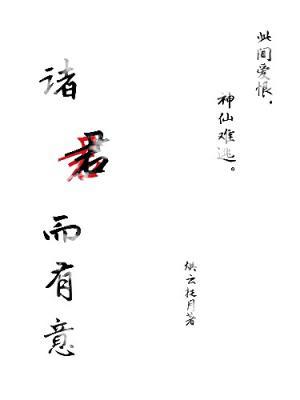 此间爱恨，
神仙难逃。
烘云托月著
诸君而有意